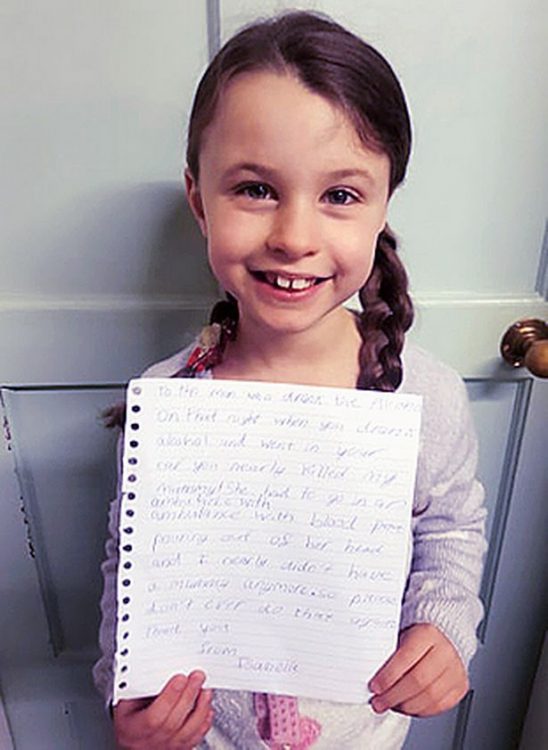 To the man who drank the Alcohol
on that night when you drank
alcohal and went in your
car you nearly killed my
mummy! She had to go in an
ambulance with
ambulance with blood
pouring out of her head
and I nearly didn't have
a mummy anymore. so please
don't ever do that again
Thank you!
from